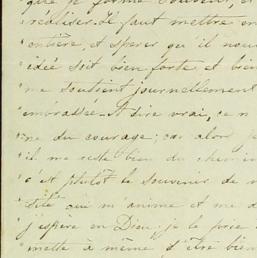 que je forme souvent, et
réaliser. Il faut mettre en
entière, et espérer qu'il nous
idée soit bien forte et bien
me soutient journellement
embrassée. A dire vrai, ce n
ne du courage; car alors je
il me reste bien du chemin
c'est plutôt le souvenir de n
qui m'anime et me d
j'espère en Dieu; je le prie
mette à même d'être bien